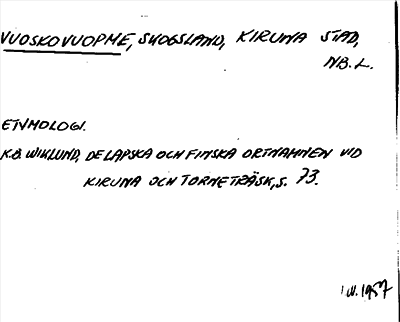 VUOSKOVUOPME, SKOGSLAND, KIRUNA STAD,
NB. L.
ETYMOLOGI.
K.B. WIKLUND, DE LAPSKA OCH FINSKA ORTNAMNEN VID
KIRUNA OCH TORNETRÄSK, S. 73.
1957